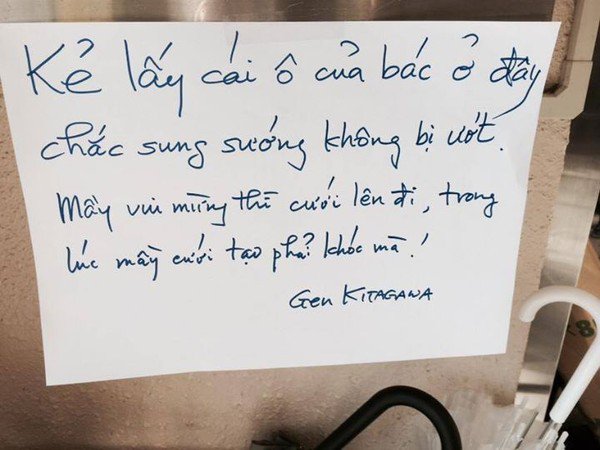 Kẻ lấy cái ô của bác ở đây
chắc sung sướng không bị ướt.
Mầy vui mừng thì cười lên đi, trong
lúc mầy cười tao phải khóc mà!
Gen KITAGAWA